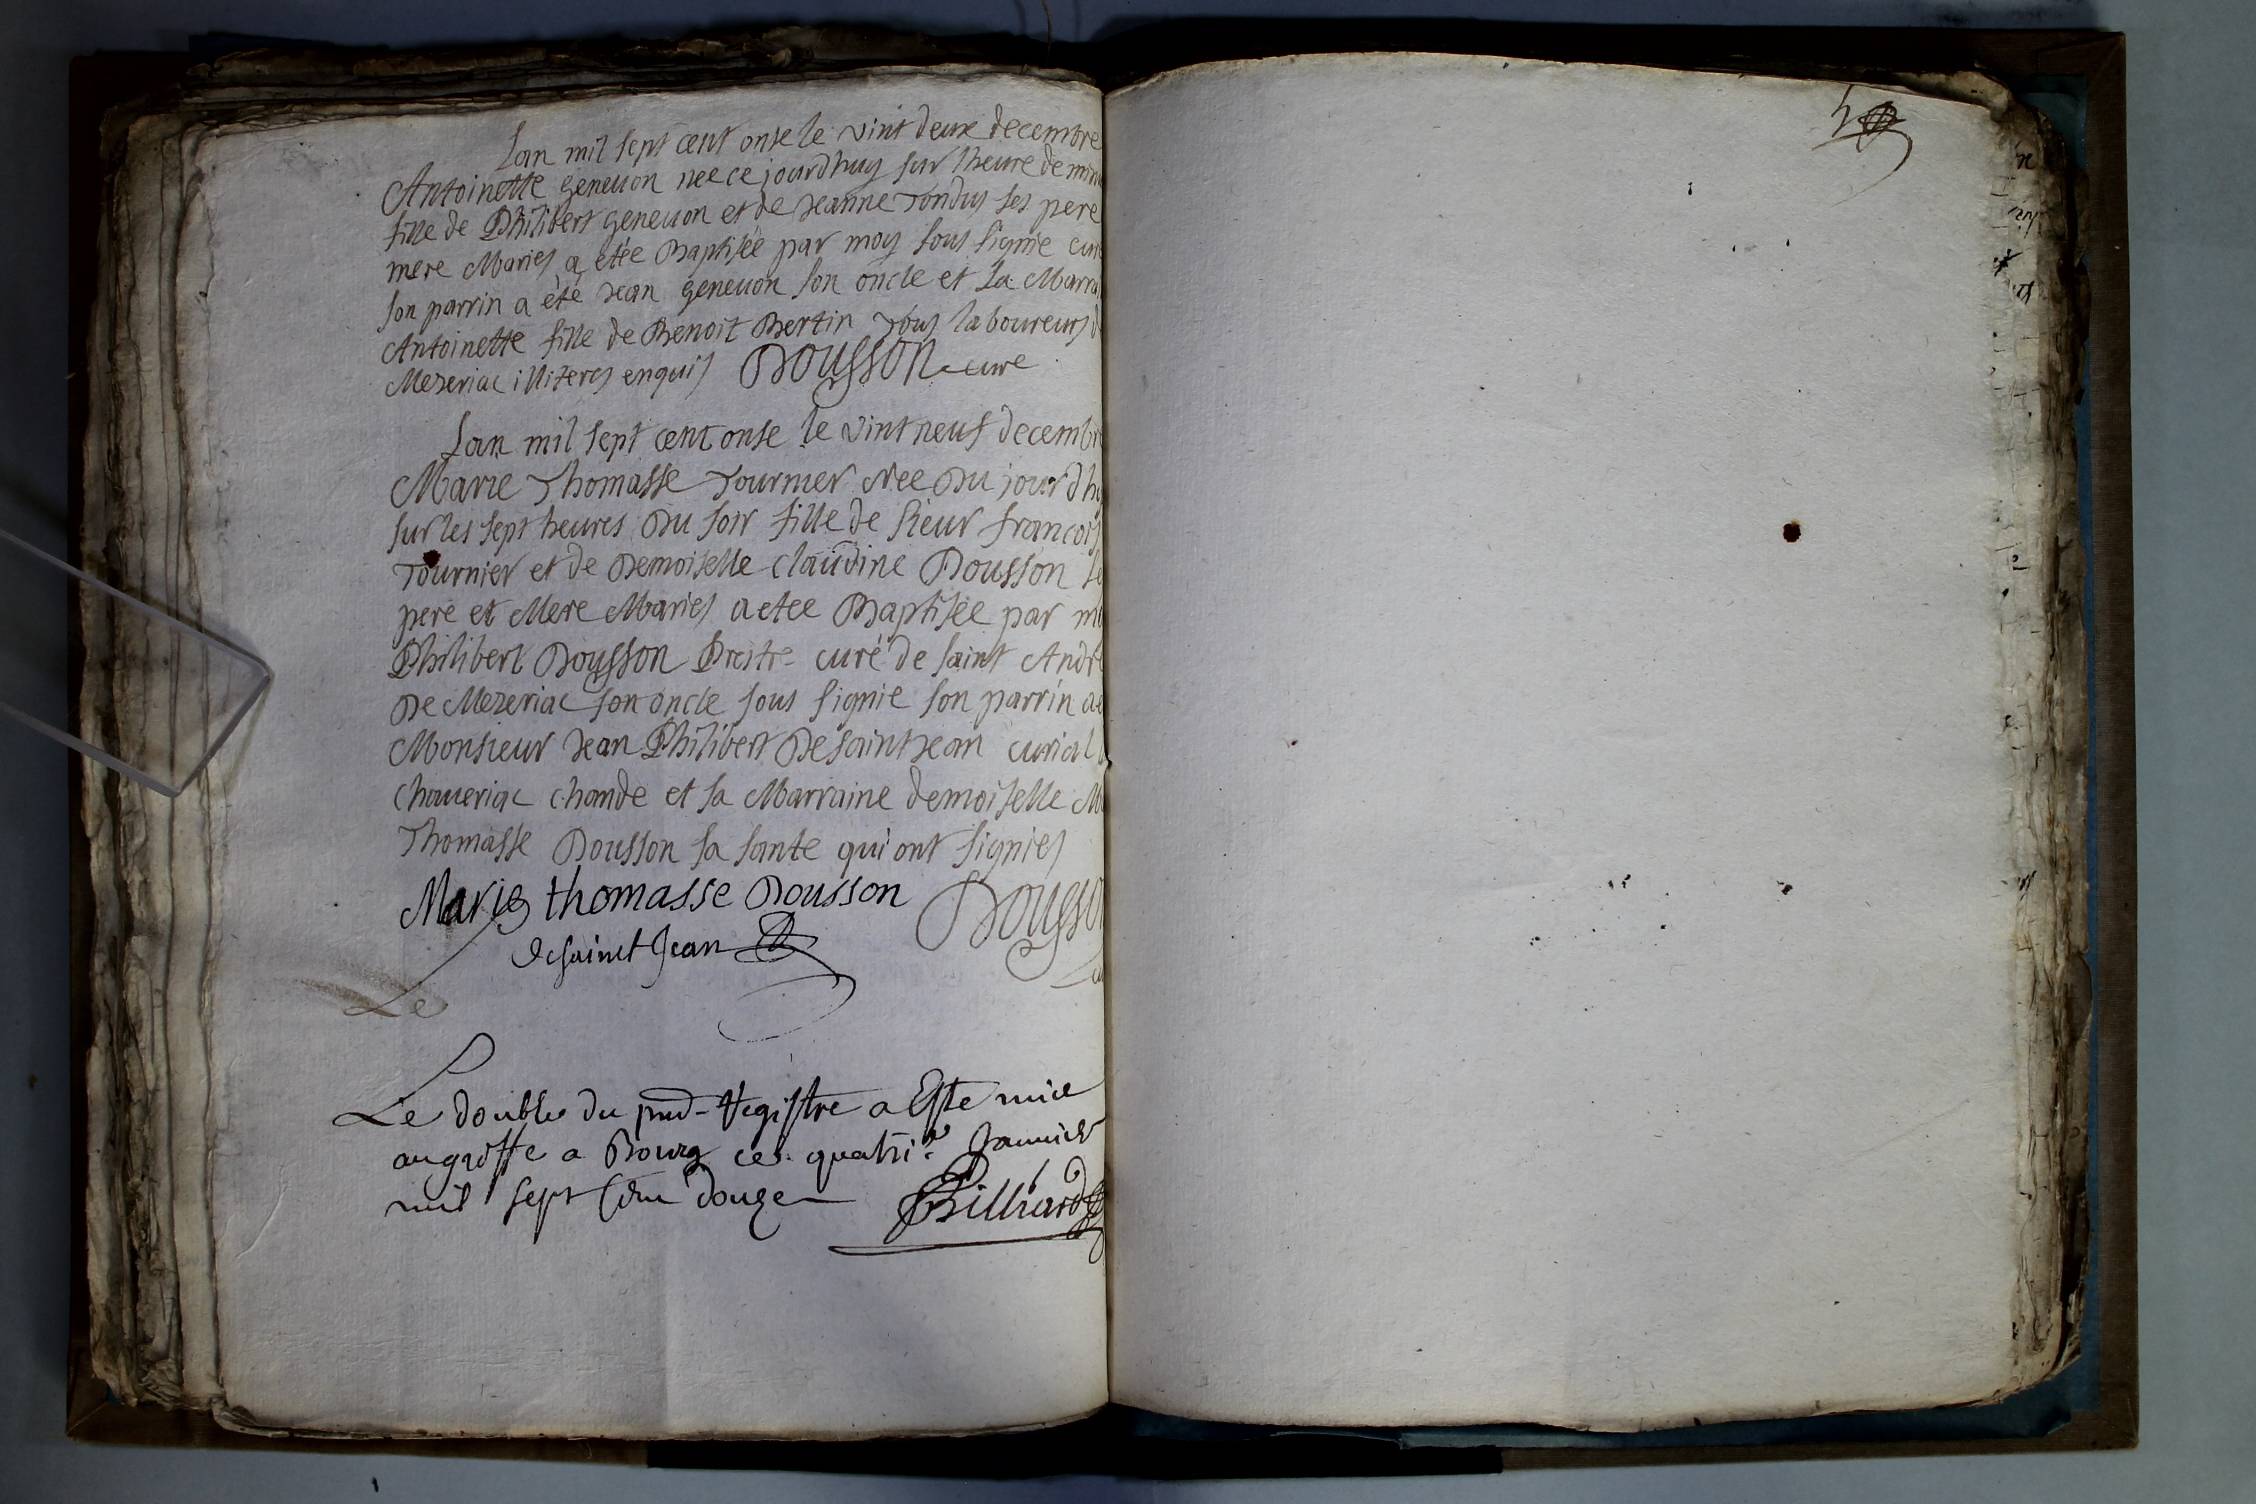 Lan mil sept cent onse le vint deux decembre
Antoinette geneuon nee ce jourdhuy sur lheure de
fille de Philibert geneuon et de Jeanne Tondus ses pere
mere Maries a etée Baptisée par moy sous signie
son parrin a été Jean geneuon son oncle et La
Antoinette fille de Benoit Bertin tous laboureurs
Mezeriac illiteres enquis Dousson cure
Lan mil sept cent onse le vint neuf
Marie Thomasse Tournier Nee Du jour
sur les sept heures Du soir fille de sieur francois
Tournier et de Demoiselle claudine Dousson
pere et Mere Maries a etee Baptisée par
Philibert Dousson Prestre curé de saint
De Mezeriac son oncle sous signie son parrin
Monsieur Jean Philibert De saint Jean curial
Chaueriac et sa Marraine demoiselle
Thomasse Dousson sa tante qui ont signies
Marie thomasse Dousson
Desainct Jean
Le
Le double du pnt Registre a Este mice
au greffe a Bourg ce quatrie Januier
mil sept Cent douze Billiard